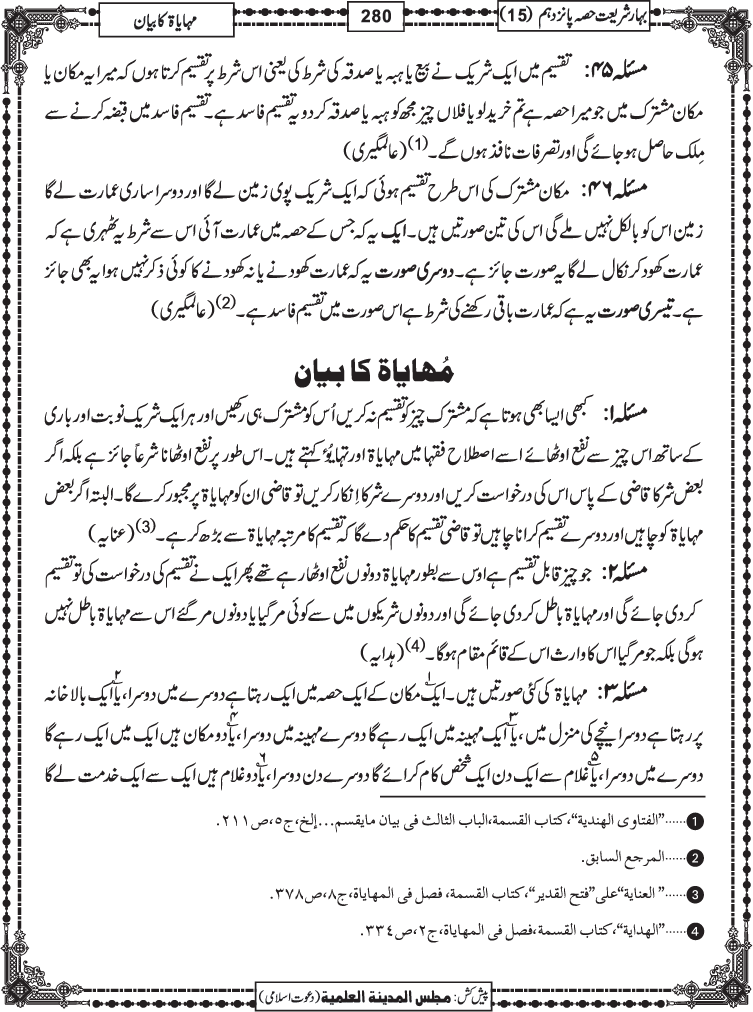 بہار شریعت حصہ پانزدہم (15)
280
مہایاۃ کا بیان
مسئلہ ۴۵: تقسیم میں ایک شریک نے بیع یا ہبہ یا صدقہ کی شرط کی یعنی اس شرط پر تقسیم کرتا ہوں کہ میرا یہ مکان یا
مکان مشترک میں جو میرا حصہ ہے تم خرید لو یا فلاں چیز مجھ کو ہبہ یا صدقہ کردو یہ تقسیم فاسد ہے۔ تقسیم فاسد میں قبضہ کرنے سے
مِلک حاصل ہوجائے گی اور تصرفات نافذ ہوں گے۔(1) (عالمگیری)
مسئلہ ۴۶: مکان مشترک کی اس طرح تقسیم ہوئی کہ ایک شریک پوی زمین لے گا اور دوسرا ساری عمارت لے گا
زمین اس کو بالکل نہیں ملے گی اس کی تین صورتیں ہیں۔ ایک یہ کہ جس کے حصہ میں عمارت آئی اس سے شرط یہ ٹھہری ہے کہ
عمارت کھود کر نکال لے گا یہ صورت جائز ہے۔ دوسری صورت یہ کہ عمارت کھودنے یا نہ کھودنے کا کوئی ذکر نہیں ہوا یہ بھی جائز
ہے۔ تیسری صورت یہ ہے کہ عمارت باقی رکھنے کی شرط ہے اس صورت میں تقسیم فاسد ہے۔(2) (عالمگیری)
مُهایاة کا بیان
مسئلہ ۱: کبھی ایسا بھی ہوتا ہے کہ مشترک چیز کو تقسیم نہ کریں اُس کو مشترک ہی رکھیں اور ہر ایک شریک نوبت اور باری
کے ساتھ اس چیز سے نفع اوٹھائے اسے اصطلاح فقہا میں مہایاۃ اور تہایُؤ کہتے ہیں۔ اس طور پر نفع اوٹھانا شرعاً جائز ہے بلکہ اگر
بعض شرکا قاضی کے پاس اس کی درخواست کریں اور دوسرے شرکا اِنکار کریں تو قاضی ان کو مہایاۃ پر مجبور کرے گا۔ البتہ اگر بعض
مہایاۃ کو چاہیں اور دوسرے تقسیم کرانا چاہیں تو قاضی تقسیم کا حکم دے گا کہ تقسیم کا مرتبہ مہایاۃ سے بڑھ کر ہے۔(3) (عنایہ)
مسئلہ ۲: جو چیز قابل تقسیم ہے اوس سے بطور مہایاۃ دونوں نفع اوٹھا رہے تھے پھر ایک نے تقسیم کی درخواست کی تو تقسیم
کردی جائے گی اور مہایاۃ باطل کردی جائے گی اور دونوں شریکوں میں سے کوئی مرگیا یا دونوں مرگئے اس سے مہایاۃ باطل نہیں
ہوگی بلکہ جو مرگیا اس کا وارث اس کے قائم مقام ہوگا۔(4) (ہدایہ)
مسئلہ ۳: مہایاۃ کی کئی صورتیں ہیں۔ ایک۱ مکان کے ایک حصہ میں ایک رہتا ہے دوسرے میں دوسرا، یا۲ ایک بالا خانہ
پر رہتا ہے دوسرا نیچے کی منزل میں، یا۳ ایک مہینہ میں ایک رہے گا دوسرے مہینہ میں دوسرا، یا۴ دو مکان ہیں ایک میں ایک رہے گا
دوسرے میں دوسرا، یا۵ غلام سے ایک دن ایک شخص کام کرائے گا دوسرے دن دوسرا، یا۶ دو غلام ہیں ایک سے ایک خدمت لے گا
❶......"الفتاوی الهندیة"، کتاب القسمة،الباب الثالث فی بیان مایقسم...إلخ،ج٥،ص٢١١.
❷......المرجع السابق.
❸......" العنایة"علی"فتح القدیر"، کتاب القسمة، فصل فی المهایاة،ج٨،ص٣٧٨.
❹......"الهدایة"، کتاب القسمة،فصل فی المهایاة،ج٢،ص٣٣٤.
پیش کش: مجلس المدینة العلمیة (دعوت اسلامی)